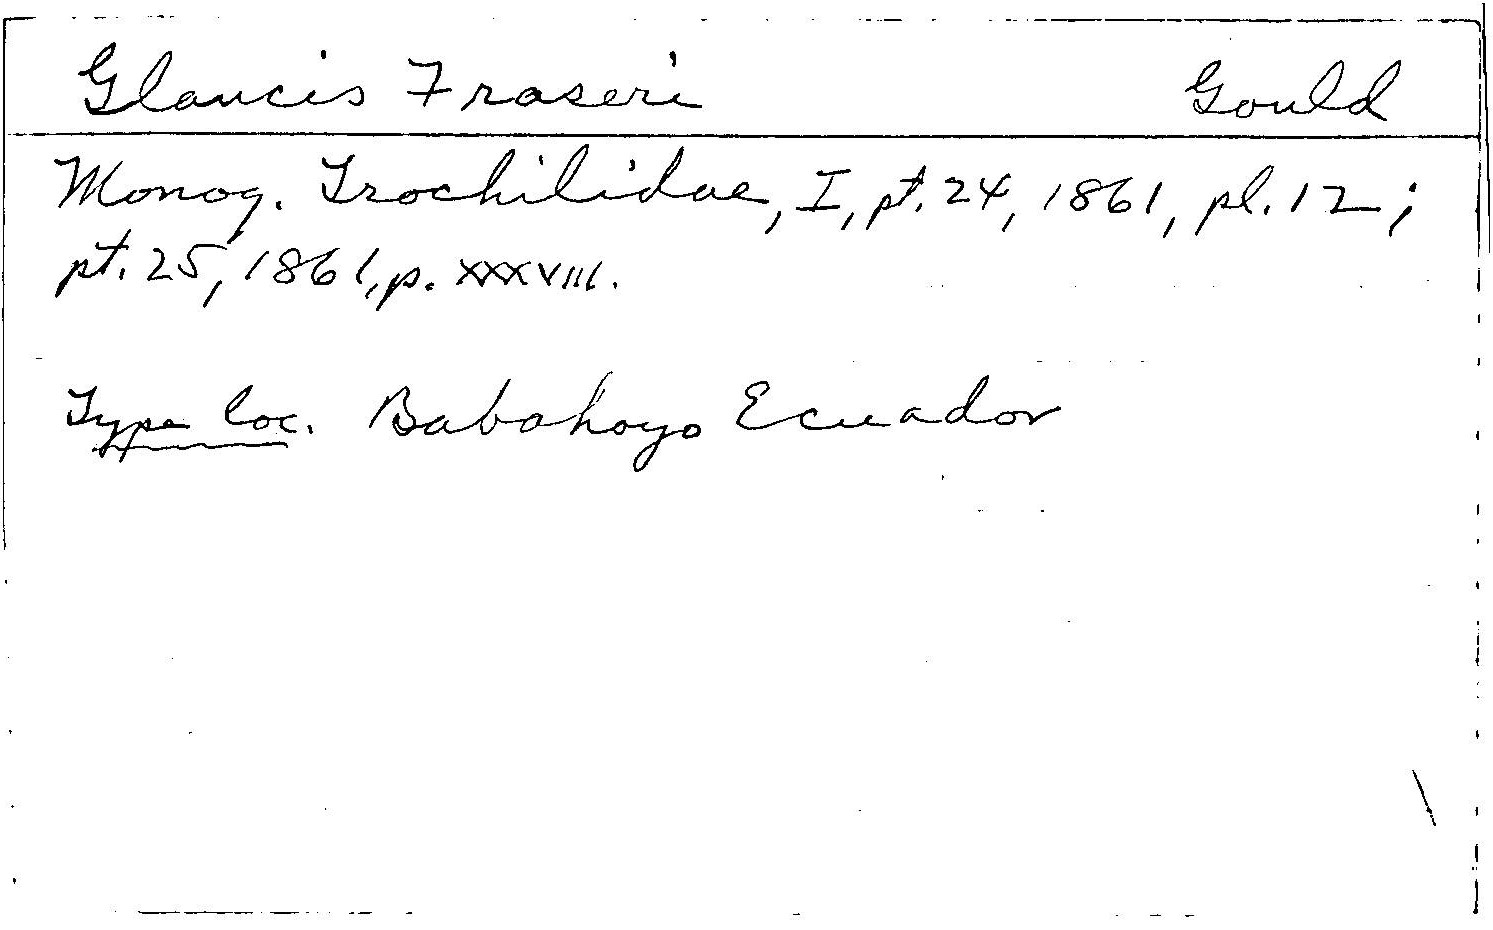 Glaucis Fraseri Gould
Monog. Trochilidae, I, pt. 24, 1861, pl. 12;
pt. 25, 1861, p. xxxviii.
Type loc. Babahoyo Ecuador